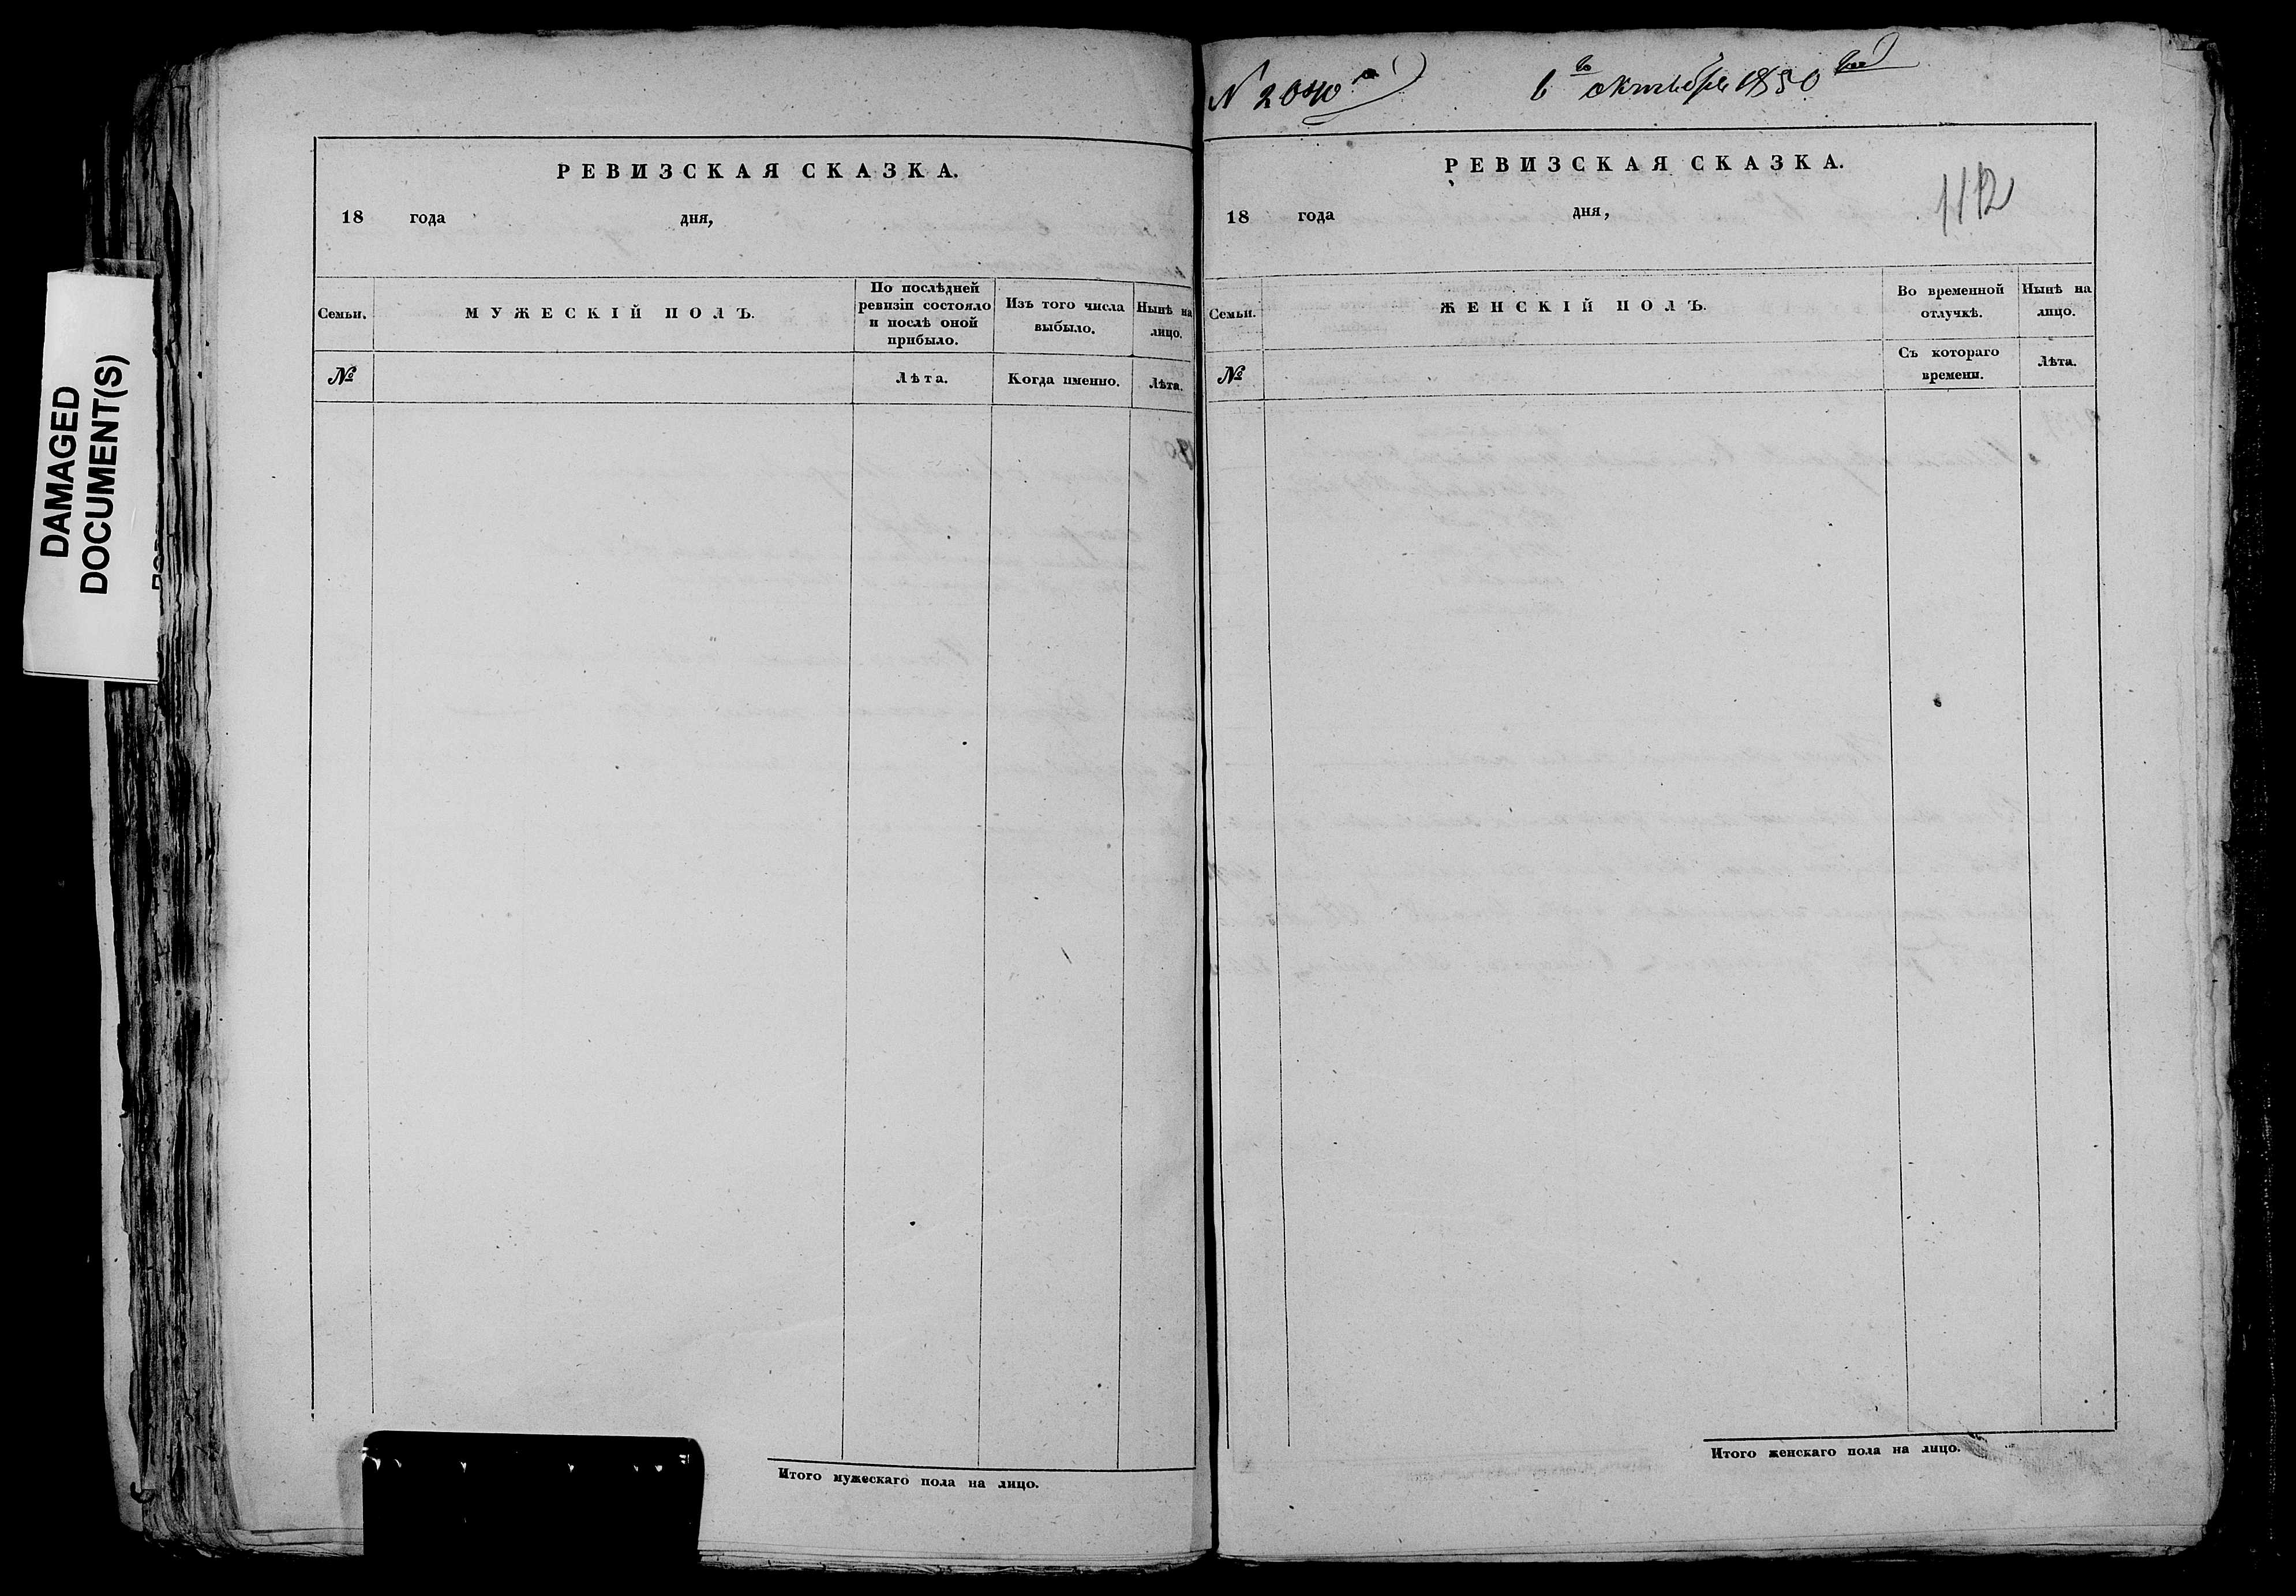 DAMAGED
DOCUMENT(S)
РЕВИЗСКАЯ СКАЗКА.
18 года дня,
Семьи.
МУЖЕСКІЙ ПОЛЪ.
По послѣдней
ревизіи состояло
и послѣ оной
прибыло.
Изъ того числа
выбыло.
Нынѣ на
лицо.
№
Лѣта.
Когда именно.
Лѣта.
Итого мужескаго пола на лицо.
N 2040
6 октября 1850
РЕВИЗСКАЯ СКАЗКА.
112
18 года дня,
Семьи.
ЖЕНСКІЙ ПОЛЪ.
Во временной
отлучкѣ.
Нынѣ на
лицо.
№
Съ котораго
времени.
Лѣта.
Итого женскаго пола на лицо.